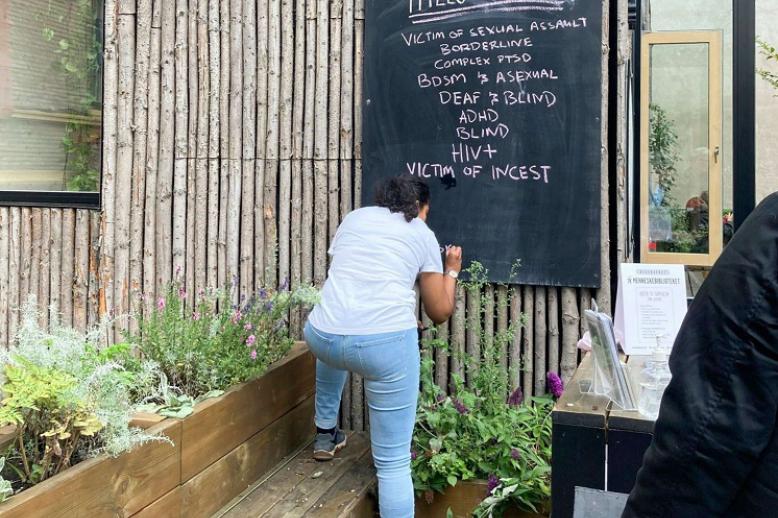 VICTIM OF SEXUAL ASSAULT
BORDERLINE
COMPLEX PTSD
BDSM & ASEXUAL
DEAF & BLIND
ADHD
BLIND
HIV+
VICTIM OF INCEST
MENNESKEBIBLIOTEKET